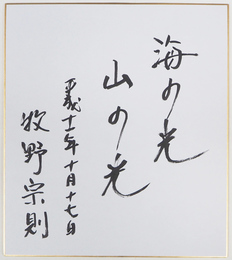 海の光
山の光
平成十二年十月十七日
牧野宗則